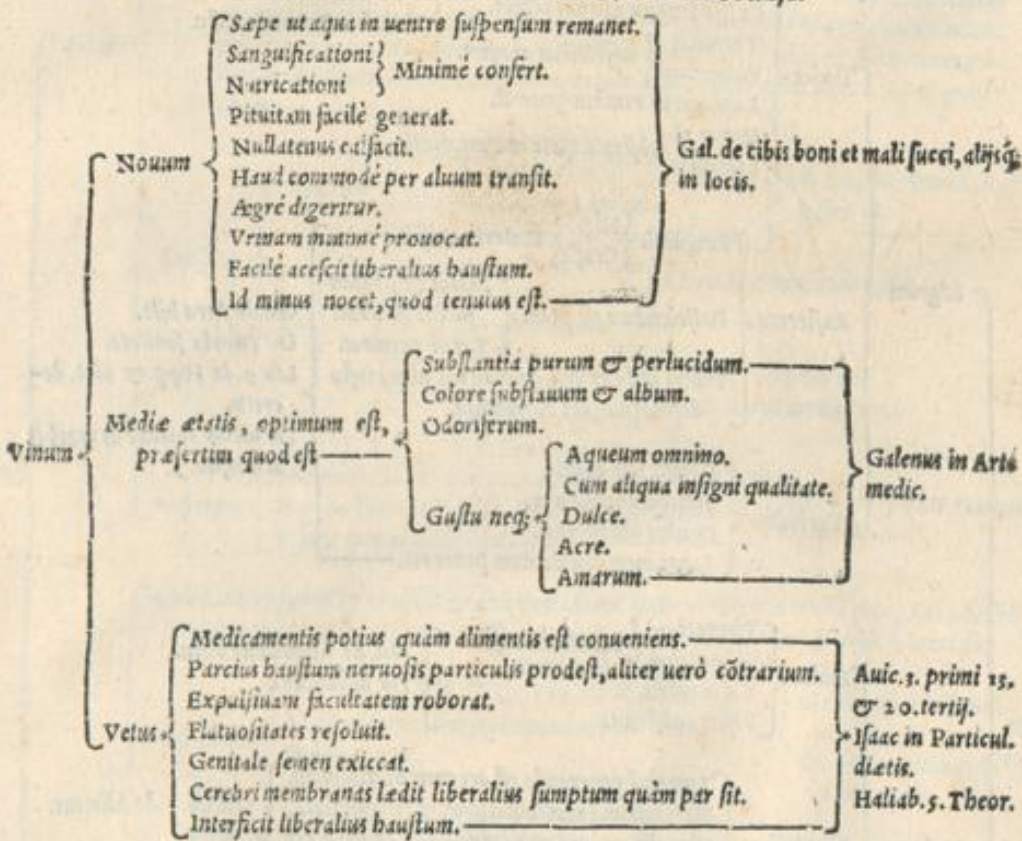 Sæpe ut aqua in uentre suspensum remanet.
Sanguificationi
Nutricationi
Minimè confert.
Pituitam facilè generat.
Nullatenus calfacit.
Haud commodè per aluum transit.
Ægrè digeritur.
Vrinam minimè prouocat.
Facilè acescit liberalius haustum.
Id minus nocet, quod tenuius est.
Nouum
Gal. de cibis boni et mali succi, alijsq;
in locis.
Vinum
Mediæ ætatis, optimum est,
præsertim quod est
Substantia purum & perlucidum.
Colore subflauum & album.
Odoriferum.
Gustu neq;
Aqueum omnino.
Cum aliqua insigni qualitate.
Dulce.
Acre.
Amarum.
Galenus in Arte
medic.
Vetus
Medicamentis potius quàm alimentis est conueniens.
Parcius haustum neruosis particulis prodest, aliter uerò cõtrarium.
Expulsiuam facultatem roborat.
Flatuositates resoluit.
Genitale semen exiccat.
Cerebri membranas lædit liberalius sumptum quàm par sit.
Interficit liberalius haustum.
Auic. 3. primi 15,
& 20. tertij.
Isaac in Particul.
diætis.
Haliab. 5. Theor.